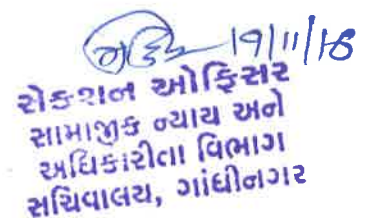 19/11/18
સેક્શન ઓફિસર
સામાજીક ન્યાય અને
અધિકારીતા વિભાગ
સચિવાલય, ગાંધીનગર